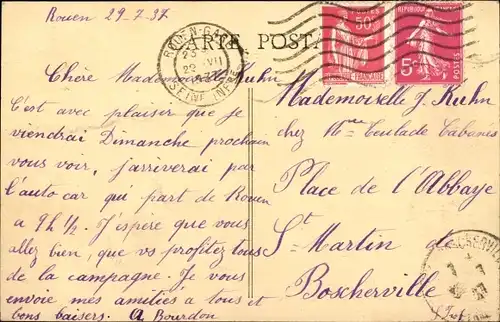 Rouen 29-7-37
CARTE POSTA
ROUEN-GARE
SEINE INFRE
50c
5c
POSTES
Chère Mademoiselle Kuhn
c'est avec plaisir que je
viendrai Dimanche prochain
vous voir, j'arriverai par
l'auto car qui part de Rouen
a 9h 1/2. J'espère que vous
allez bien, que vs profitez tous
de la campagne. Je vous
envoie mes amitiés a tous et
bons baisers. A Bourdon
Mademoiselle J. Kuhn
chez Mme Teulade Cabanes
Place de l'Abbaye
St Martin de
Boscherville
S. Inf